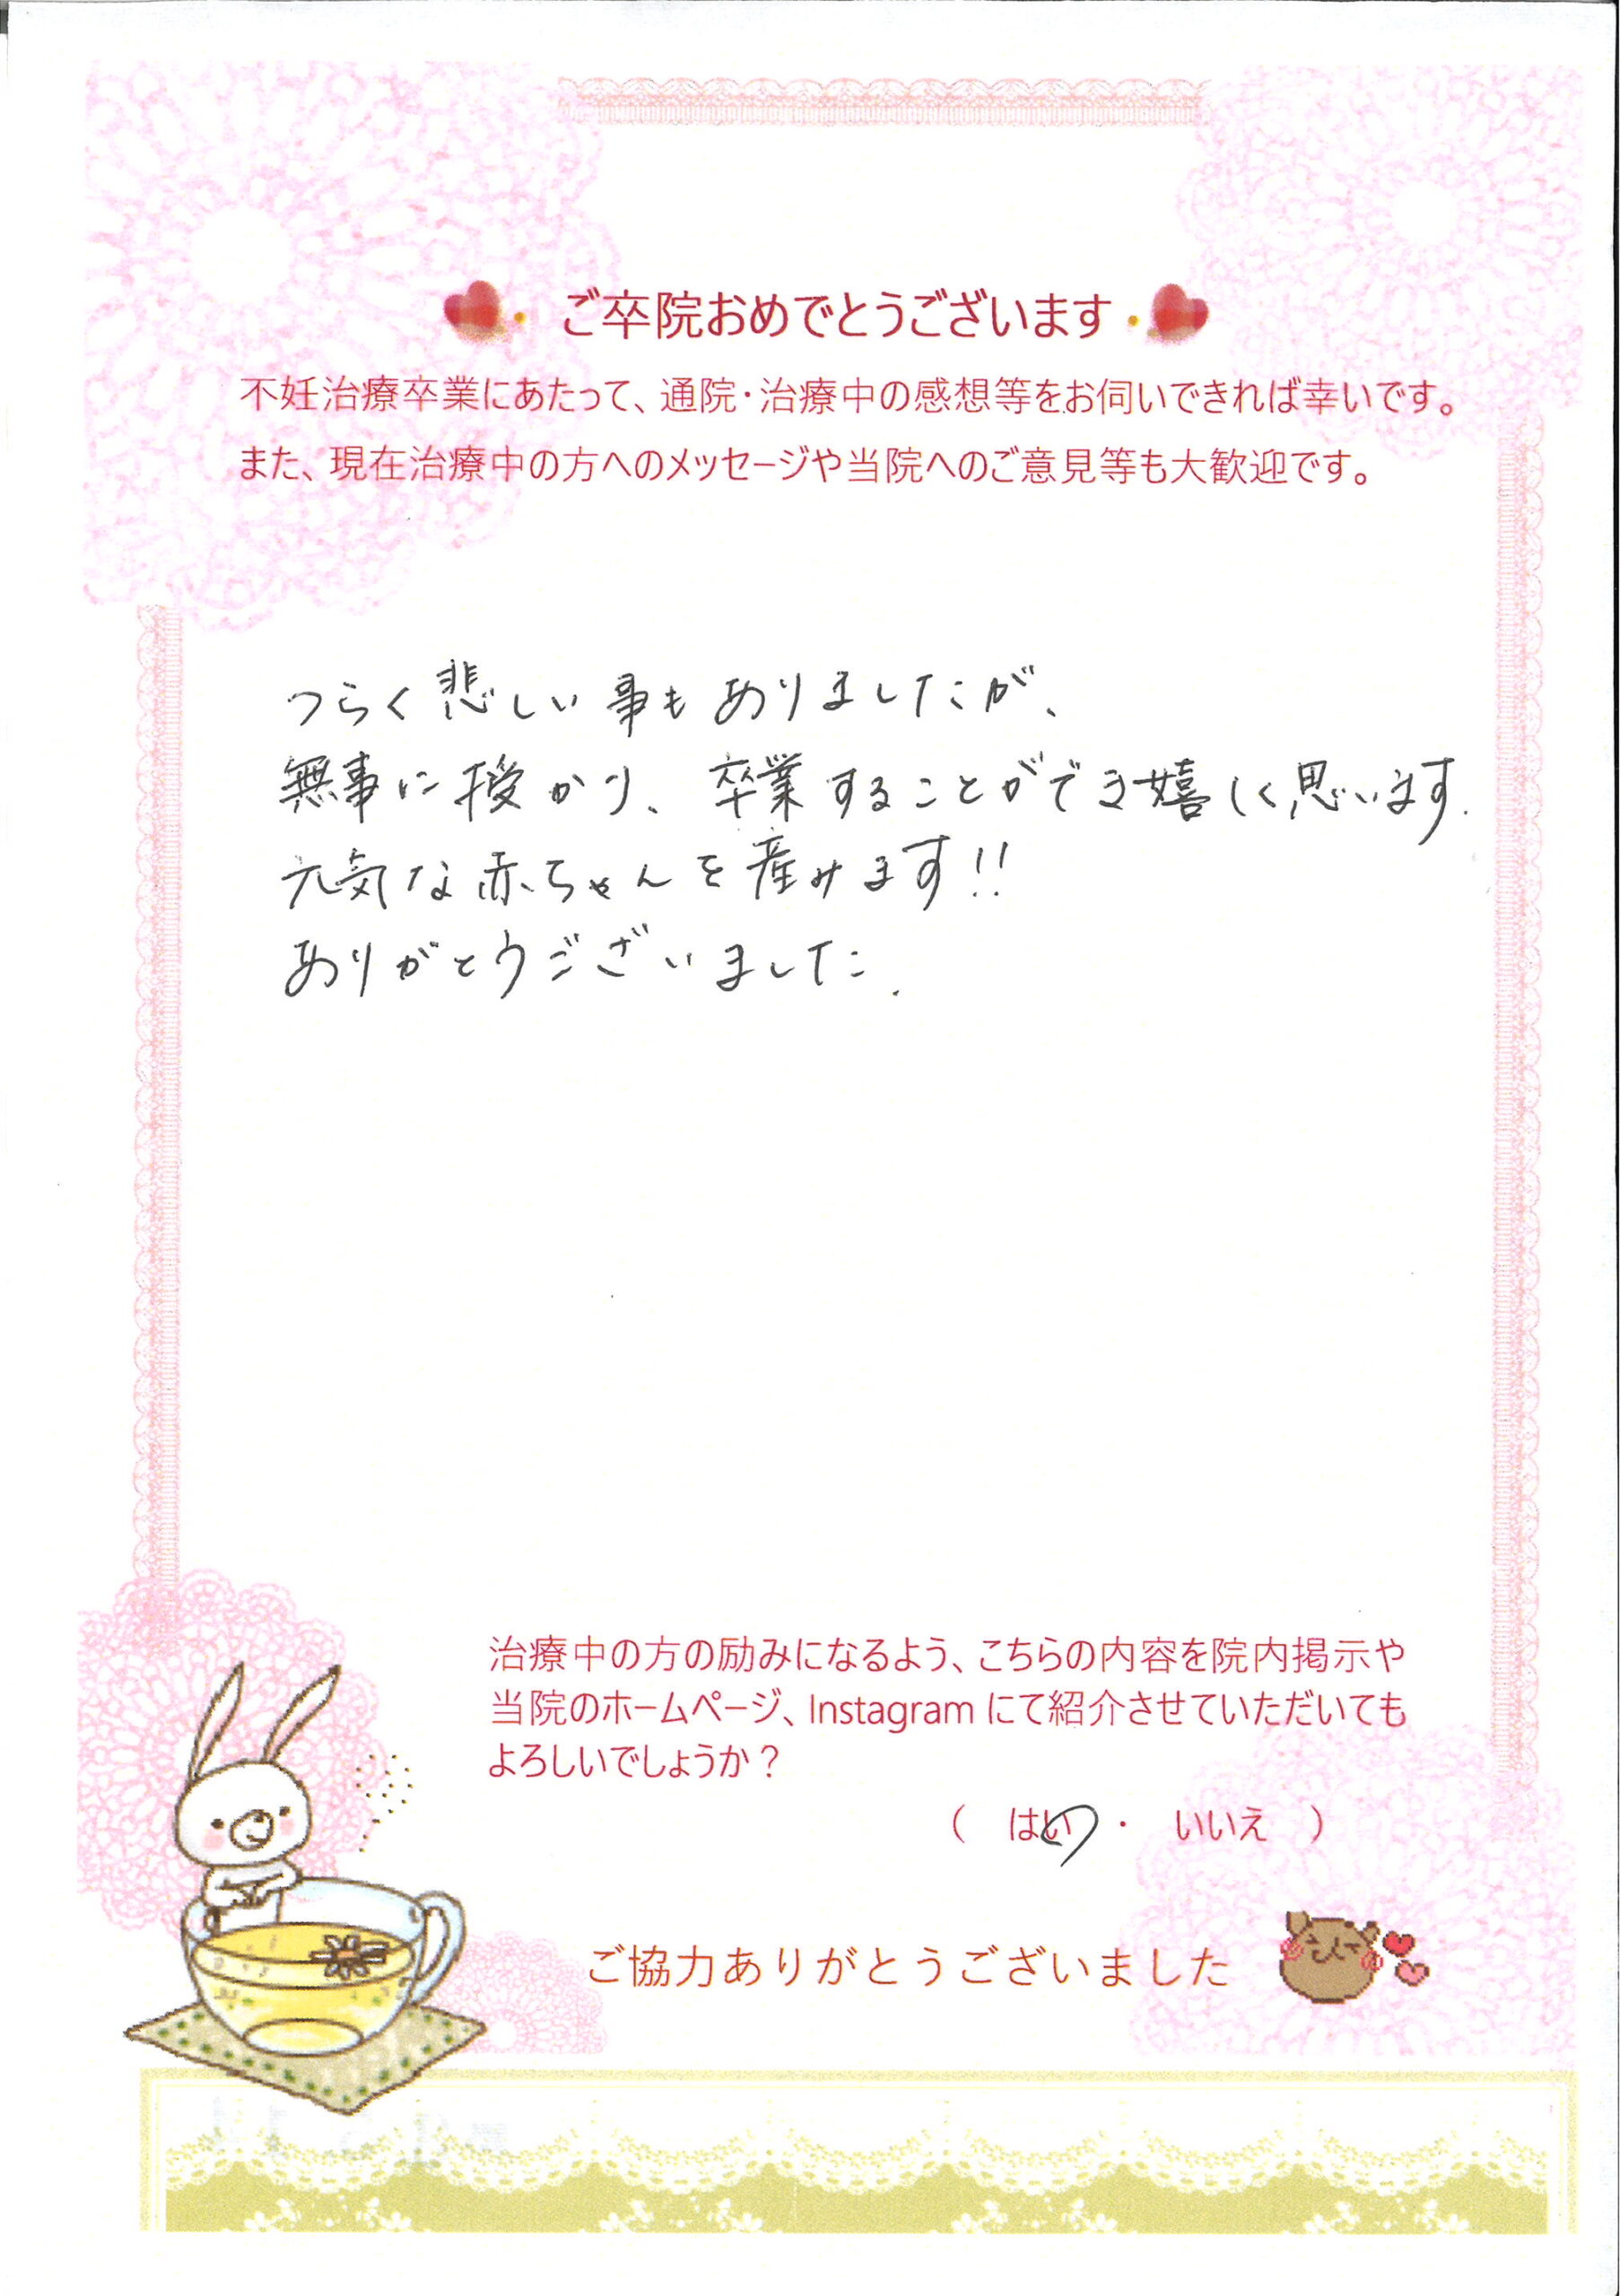 ご卒院おめでとうございます
不妊治療卒業にあたって、通院・治療中の感想等をお伺いできれば幸いです。
また、現在治療中の方へのメッセージや当院へのご意見等も大歓迎です。
つらく悲しい事もありましたが、
無事に授かり、卒業することができ嬉しく思います.
元気な赤ちゃんを産みます!!
ありがとうございました.
治療中の方の励みになるよう、こちらの内容を院内掲示や
当院のホームページ、Instagram にて紹介させていただいても
よろしいでしょうか？
（ はい ・ いいえ ）
ご協力ありがとうございました